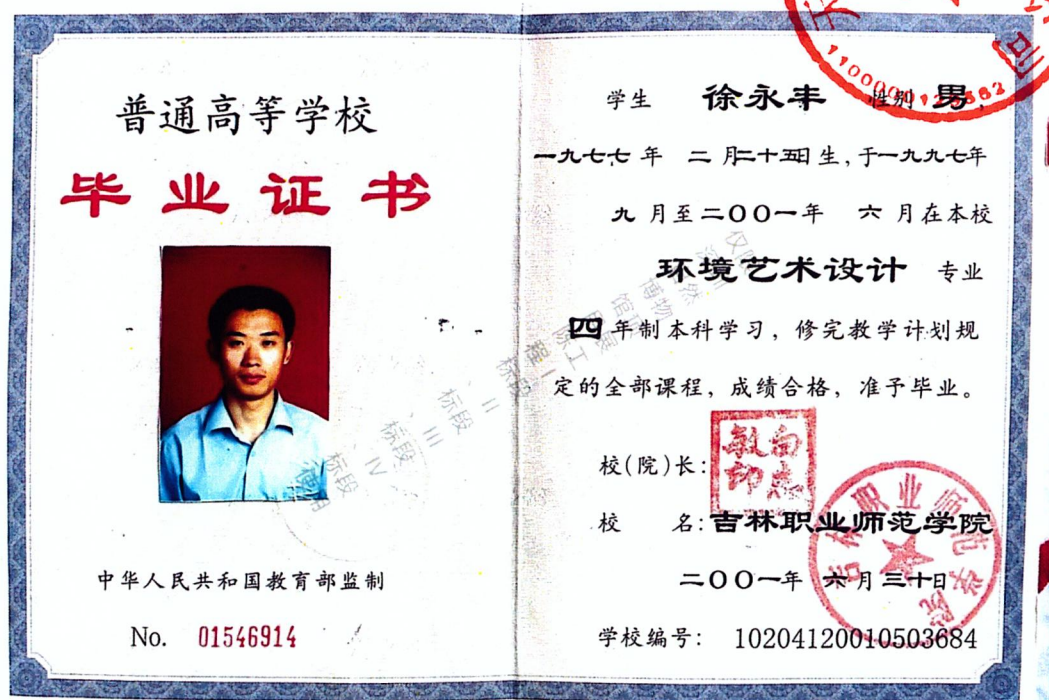 普通高等学校
毕业证书
中华人民共和国教育部监制
No. 01546914
学生 徐永丰 性别 男,
一九七七年 二月二十五日生,于一九九七年
九月至二〇〇一年 六月在本校
环境艺术设计 专业
四年制本科学习,修完教学计划规
定的全部课程,成绩合格,准予毕业。
校(院)长:
校 名:吉林职业师范学院
二〇〇一年 六月三十日
学校编号: 10204120010503684
吉林职业师范学院